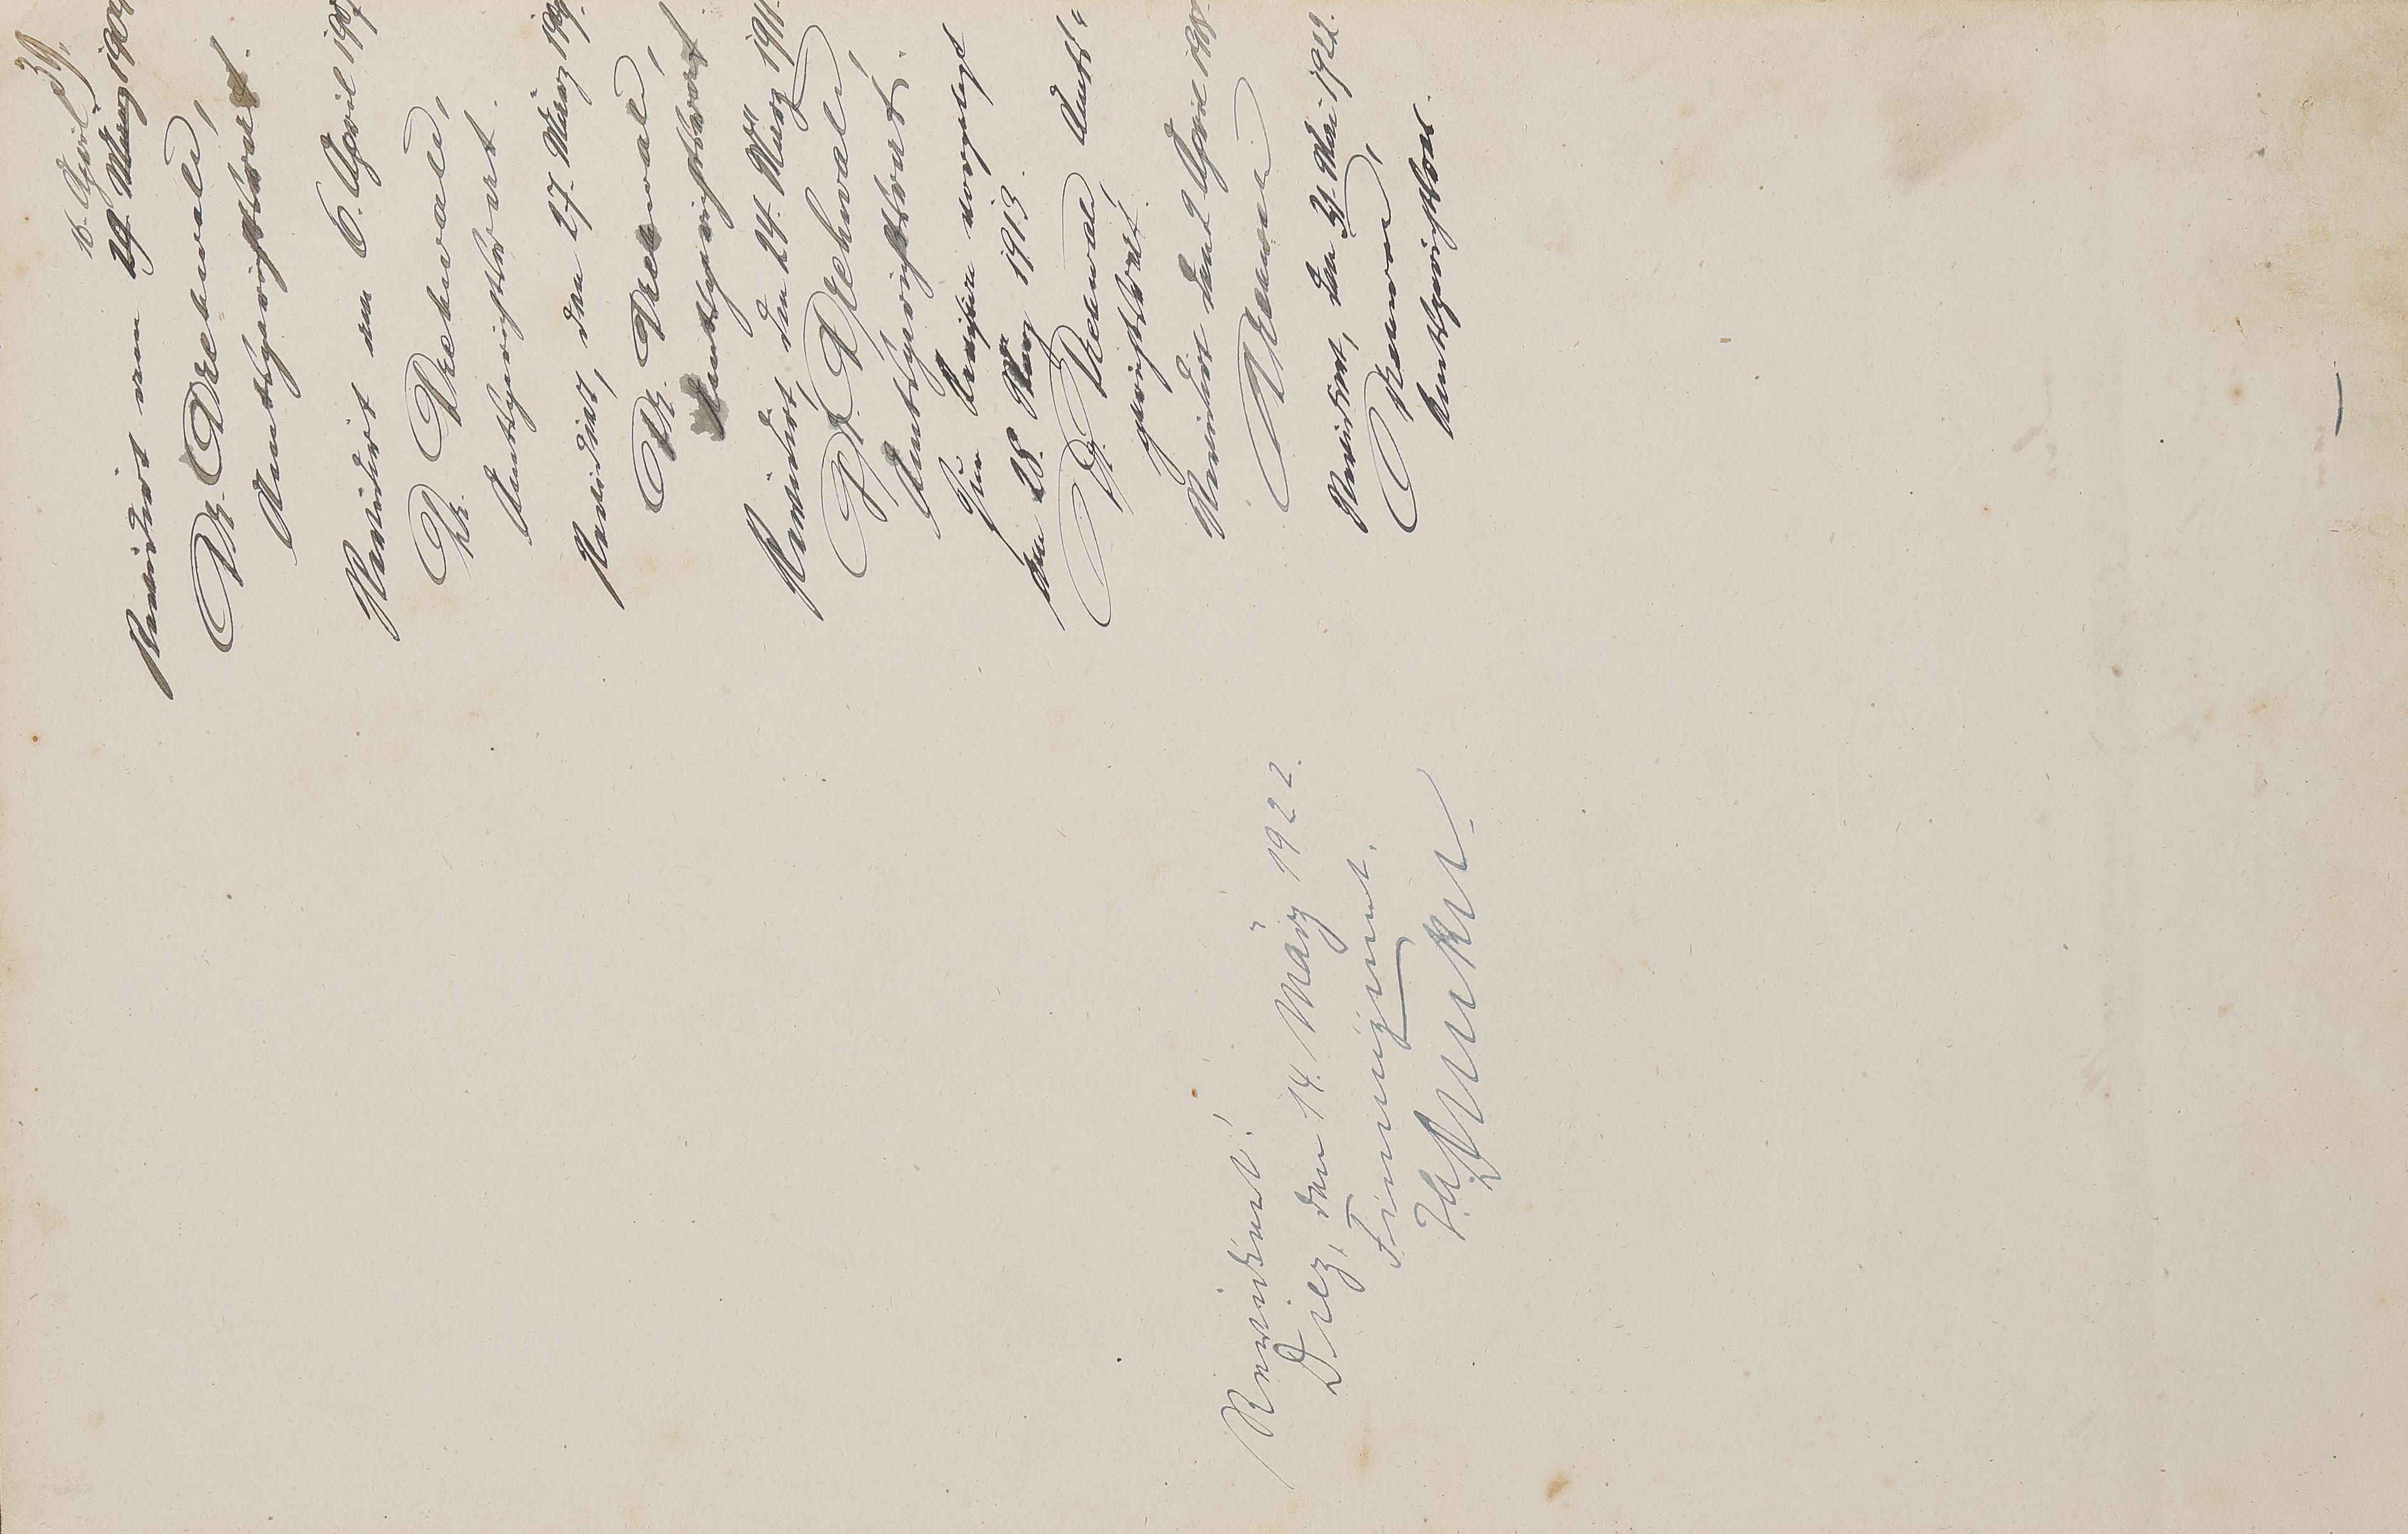 39.
16. April
Revidirt am 29. März 1904
Dr. Drehwald,
Amtsgerichtsrat.
Revidirt am 6. April 1907
Dr. Drehwald,
Amtsgerichtsrat.
Revidirt, den 27. März 1909.
Dr. Drehwald,
Amtsgerichtsrat.
Revidirt, den 24. März 1911.
Dr. Drehwald,
Amtsgerichtsrat.
Zur Revision vorgelegt
den 28. März 1913.
Dr. Drehwald, Amts-
gerichtsrat.
Revidirt den 2 April
Revidirt, den 31. Mai 1921.
Amtsgerichtsrat.
Revidiert!
Diez, den 14. März 1922.
Finanzamt.